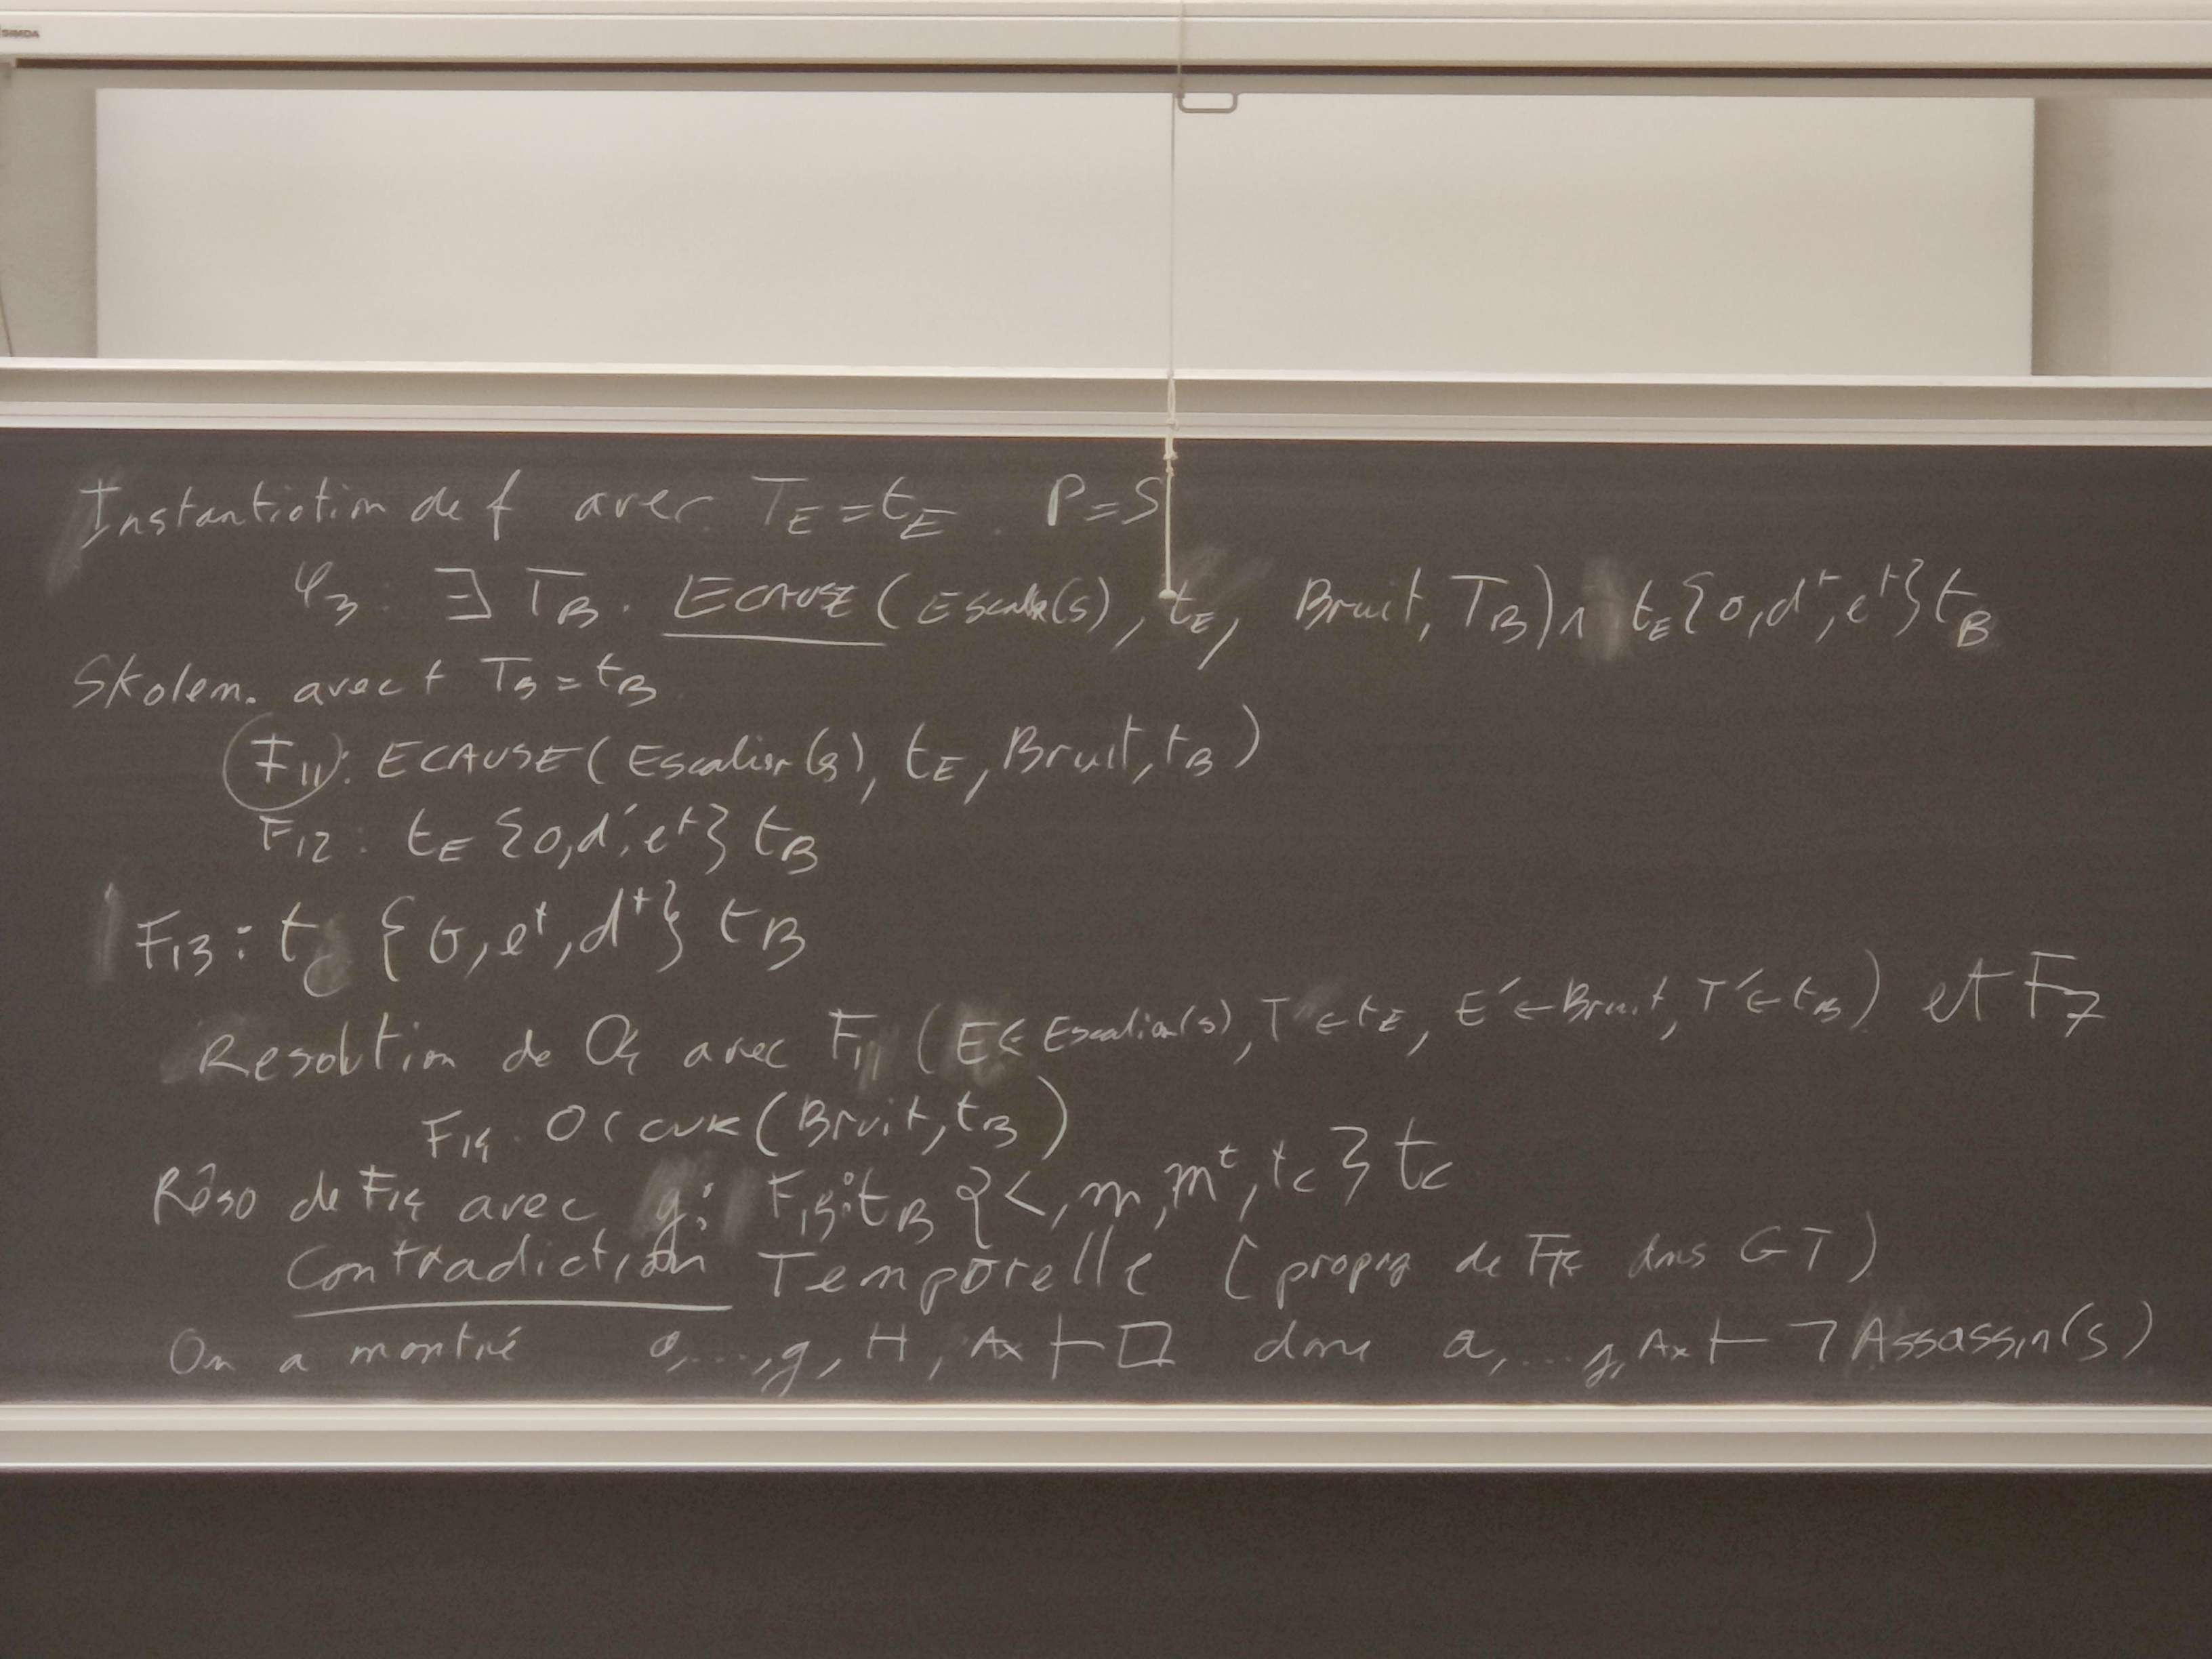 SIMDA
Instantiation de f avec T_E = t_E . P = S
φ_3 : ∃ T_B . ECAUSE(Escalier(s), t_E, Bruit, T_B) ∧ t_E {o, d^t, e^t} t_B
Skolem. avec T_B = t_B
F_11 : ECAUSE(Escalier(s), t_E, Bruit, t_B)
F_12 : t_E {o, d^t, e^t} t_B
F_13 : t {σ, e^t, d^t} t_B
Resolution de O_4 avec F_11 (E ← Escalier(s), T ← t_E, E' ← Bruit, T' ← t_B) et F_7
F_14 . OCCUR(Bruit, t_B)
Réso de F_14 avec g : F_15 : t_B {<, m, m^t, } t_C
Contradiction Temporelle (propag de dans GT)
On a montré a, ..., g, H, Ax ⊢ □ donc a, ... g, Ax ⊢ ¬ Assassin(s)